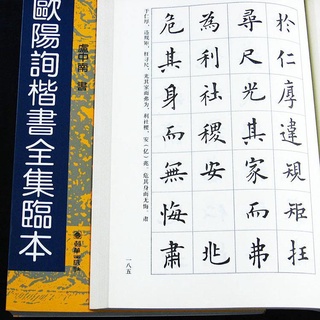 於仁厚違規矩枉
尋尺光其家而弗
為利社稷安兆
危其身而無悔肅
于仁厚，违规矩，枉寻尺，光其家而弗为，利社稷，安（亿）兆，危其身而无悔。肃
一八五
歐陽詢楷書全集臨本
盧中南 書